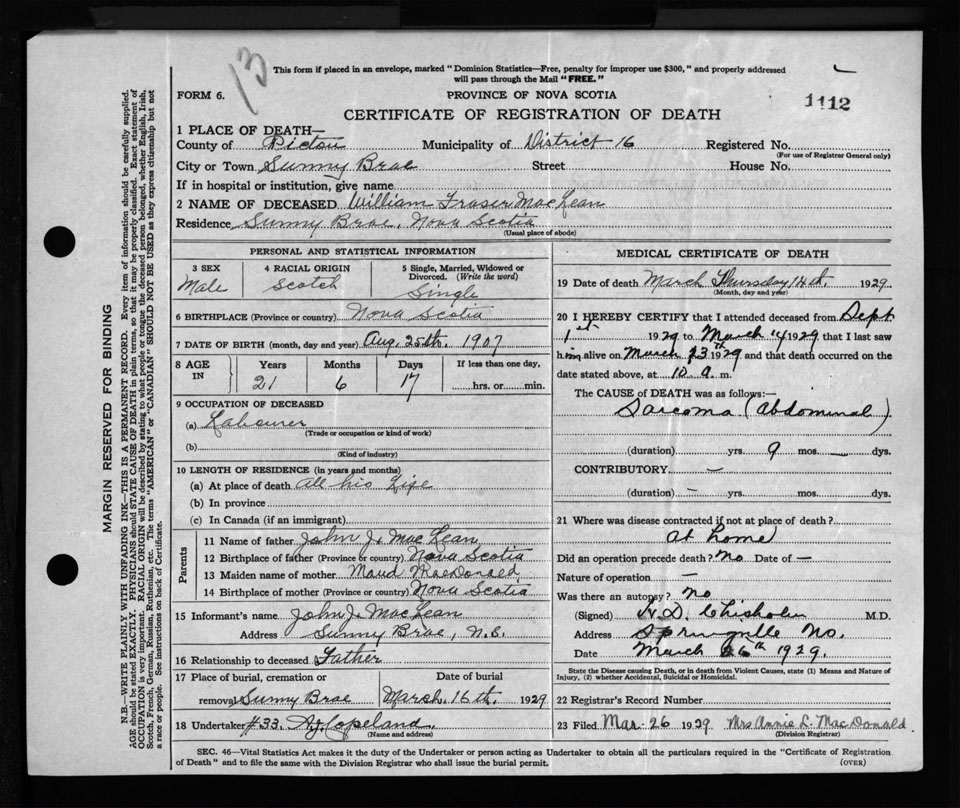 13
This form if placed in an envelope, marked "Dominion Statistics—Free, penalty for improper use $300," and properly addressed
will pass through the Mail "FREE."
FORM 6.
PROVINCE OF NOVA SCOTIA
1112
CERTIFICATE OF REGISTRATION OF DEATH
1 PLACE OF DEATH—
County of Pictou Municipality of District 16 Registered No.
(For use of Registrar General only)
City or Town Sunny Brae Street House No.
If in hospital or institution, give name
2 NAME OF DECEASED William Fraser MacLean
Residence Sunny Brae, Nova Scotia
(Usual place of abode)
PERSONAL AND STATISTICAL INFORMATION
3 SEX
Male
4 RACIAL ORIGIN
Scotch
5 Single, Married, Widowed or
Divorced. (Write the word)
Single
6 BIRTHPLACE (Province or country) Nova Scotia
7 DATE OF BIRTH (month, day and year) Aug. 25th. 1907
8 AGE
IN
Years
21
Months
6
Days
17
If less than one day,
hrs. or min.
9 OCCUPATION OF DECEASED
(a) Labourer
(Trade or occupation or kind of work)
(b)
(Kind of industry)
10 LENGTH OF RESIDENCE (in years and months)
(a) At place of death All his Life
(b) In province
(c) In Canada (if an immigrant)
Parents
11 Name of father John J. MacLean
12 Birthplace of father (Province or country) Nova Scotia
13 Maiden name of mother Maud MacDonald
14 Birthplace of mother (Province or country) Nova Scotia
15 Informant's name John J. MacLean
Address Sunny Brae, N.S.
16 Relationship to deceased Father
17 Place of burial, cremation or
removal Sunny Brae
Date of burial
March 16th. 1929
18 Undertaker #33. Copeland.
(Name and address)
MEDICAL CERTIFICATE OF DEATH
19 Date of death March Thursday 14th. 1929
(Month, day and year)
20 I HEREBY CERTIFY that I attended deceased from Sept
1st 1929 to March 14 1929 that I last saw
him alive on March 13th 1929 and that death occurred on the
date stated above, at 10 a. m.
The CAUSE of DEATH was as follows:—
Sarcoma (abdominal)
(duration) yrs. 9 mos. — dys.
CONTRIBUTORY —
(duration) — yrs. mos. dys.
21 Where was disease contracted if not at place of death?
At home
Did an operation precede death? No Date of —
Nature of operation —
Was there an autopsy? No
(Signed) H.D. Chisholm M.D.
Address Springville No.
Date March 26th 1929.
State the Disease causing Death, or in death from Violent Causes, state (1) Means and Nature of
Injury, (2) whether Accidental, Suicidal or Homicidal.
22 Registrar's Record Number
23 Filed Mar. 26 1929 Mrs Annie L. MacDonald
(Division Registrar)
SEC. 46—Vital Statistics Act makes it the duty of the Undertaker or person acting as Undertaker to obtain all the particulars required in the "Certificate of Registration
of Death" and to file the same with the Division Registrar who shall issue the burial permit.
(OVER)
MARGIN RESERVED FOR BINDING
N.B.—WRITE PLAINLY WITH UNFADING INK—THIS IS A PERMANENT RECORD. Every item of information should be carefully supplied.
AGE should be stated EXACTLY. PHYSICIANS should STATE CAUSE OF DEATH in plain terms, so that it may be properly classified. Exact statement of
OCCUPATION is very important. RACIAL ORIGIN will be described by stating to what people or tongue the deceased person belonged, whether English, Irish,
Scotch, French, German, Russian, Ruthenian, etc. The terms "AMERICAN" or "CANADIAN" SHOULD NOT BE USED as they express citizenship but not
a race or people. See instructions on back of Certificate.